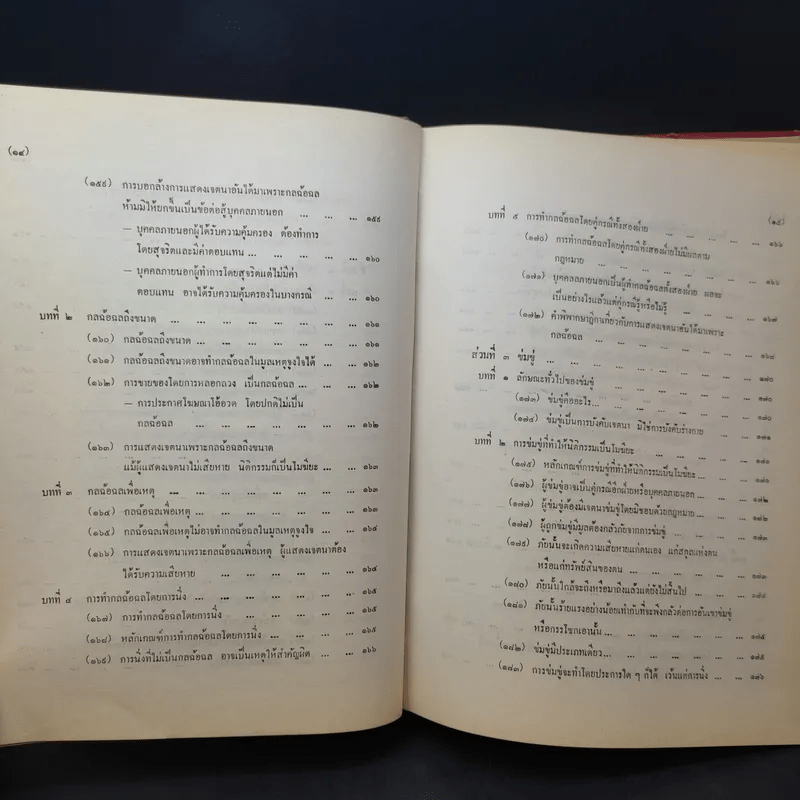 (๑๔)
(๑๕๙) การบอกล้างการแสดงเจตนาอันได้มาเพราะกลฉ้อฉล
ห้ามมิให้ยกขึ้นเป็นข้อต่อสู้บุคคลภายนอก ... ... ... ๑๕๙
— บุคคลภายนอกผู้ได้รับความคุ้มครอง ต้องทำการ
โดยสุจริตและมีค่าตอบแทน ... ... ... ... ๑๖๐
— บุคคลภายนอกผู้ทำการโดยสุจริตแต่ไม่มีค่า
ตอบแทน อาจได้รับความคุ้มครองในบางกรณี ... ... ๑๖๐
บทที่ ๒ กลฉ้อฉลถึงขนาด ... ... ... ... ... ... ... ๑๖๑
(๑๖๐) กลฉ้อฉลถึงขนาด ... ... ... ... ... ... ๑๖๑
(๑๖๑) กลฉ้อฉลถึงขนาดอาจทำกลฉ้อฉลในมูลเหตุจูงใจได้ ... ... ๑๖๒
(๑๖๒) การขายของโดยการหลอกลวง เป็นกลฉ้อฉล ... ... ... ๑๖๒
— การประกาศโฆษณาโอ้อวด โดยปกติไม่เป็น
กลฉ้อฉล ... ... ... ... ... ... ... ๑๖๒
(๑๖๓) การแสดงเจตนาเพราะกลฉ้อฉลถึงขนาด
แม้ผู้แสดงเจตนาไม่เสียหาย นิติกรรมก็เป็นโมฆียะ ... ... ๑๖๓
บทที่ ๓ กลฉ้อฉลเพื่อเหตุ ... ... ... ... ... ... ... ๑๖๓
(๑๖๔) กลฉ้อฉลเพื่อเหตุ ... ... ... ... ... ... ๑๖๓
(๑๖๕) กลฉ้อฉลเพื่อเหตุไม่อาจทำกลฉ้อฉลในมูลเหตุจูงใจ ... ... ๑๖๔
(๑๖๖) การแสดงเจตนาเพราะกลฉ้อฉลเพื่อเหตุ ผู้แสดงเจตนาต้อง
ได้รับความเสียหาย ... ... ... ... ... ... ๑๖๔
บทที่ ๔ การทำกลฉ้อฉลโดยการนิ่ง ... ... ... ... ... ... ๑๖๕
(๑๖๗) การทำกลฉ้อฉลโดยการนิ่ง ... ... ... ... ... ๑๖๕
(๑๖๘) หลักเกณฑ์การทำกลฉ้อฉลโดยการนิ่ง ... ... ... ... ๑๖๕
(๑๖๙) การนิ่งที่ไม่เป็นกลฉ้อฉล อาจเป็นเหตุให้สำคัญผิด ... ... ... ๑๖๖
(๑๕)
บทที่ ๕ การทำกลฉ้อฉลโดยคู่กรณีทั้งสองฝ่าย ... ... ... ... ... ๑๖๖
(๑๗๐) การทำกลฉ้อฉลโดยคู่กรณีทั้งสองฝ่ายไม่มีผลตาม
กฎหมาย ... ... ... ... ... ... ... ๑๖๖
(๑๗๑) บุคคลภายนอกเป็นผู้ทำกลฉ้อฉลทั้งสองฝ่าย ผลจะ
เป็นอย่างไรแล้วแต่คู่กรณีรู้หรือไม่รู้ ... ... ... ... ๑๖๗
(๑๗๒) คำพิพากษาฎีกาเกี่ยวกับการแสดงเจตนาอันได้มาเพราะ
กลฉ้อฉล ... ... ... ... ... ... ... ๑๖๘
ส่วนที่ ๓ ข่มขู่ ... ... ... ... ... ... ... ... ๑๗๐
บทที่ ๑ ลักษณะทั่วไปของข่มขู่ ... ... ... ... ... ... ๑๗๐
(๑๗๓) ข่มขู่คืออะไร ... ... ... ... ... ... ... ๑๗๐
(๑๗๔) ข่มขู่เป็นการบังคับเจตนา มิใช่การบังคับร่างกาย ... ... ... ๑๗๑
บทที่ ๒ การข่มขู่ที่ทำให้นิติกรรมเป็นโมฆียะ ... ... ... ... ... ๑๗๑
(๑๗๕) หลักเกณฑ์การข่มขู่ที่ทำให้นิติกรรมเป็นโมฆียะ ... ... ...
(๑๗๖) ผู้ข่มขู่อาจเป็นคู่กรณีอีกฝ่ายหรือบุคคลภายนอก ... ... ... ๑๗๒
(๑๗๗) ผู้ข่มขู่ต้องมีเจตนาข่มขู่โดยมิชอบด้วยกฎหมาย ... ... ... ๑๗๒
(๑๗๘) ผู้ถูกข่มขู่มีมูลต้องกลัวภัยจากการข่มขู่ ... ... ... ... ๑๗๓
(๑๗๙) ภัยนั้นจะเกิดความเสียหายแก่ตนเอง แก่สกุลแห่งตน
หรือแก่ทรัพย์สินของตน ... ... ... ... ... ๑๗๓
(๑๘๐) ภัยนั้นใกล้จะถึงหรือมาถึงแล้วแต่ยังไม่สิ้นไป ... ... ... ๑๗๔
(๑๘๑) ภัยนั้นร้ายแรงอย่างน้อยเท่ากับที่จะพึงกลัวต่อการอันเขาขู่เข็ญ
หรือกรรโชกเอานั้น ... ... ... ... ... ... ๑๗๕
(๑๘๒) ข่มขู่มีประเภทเดียว ... ... ... ... ... ... ๑๗๕
(๑๘๓) การข่มขู่จะทำโดยประการใด ๆ ก็ได้ เว้นแต่การนิ่ง ... ... ๑๗๖